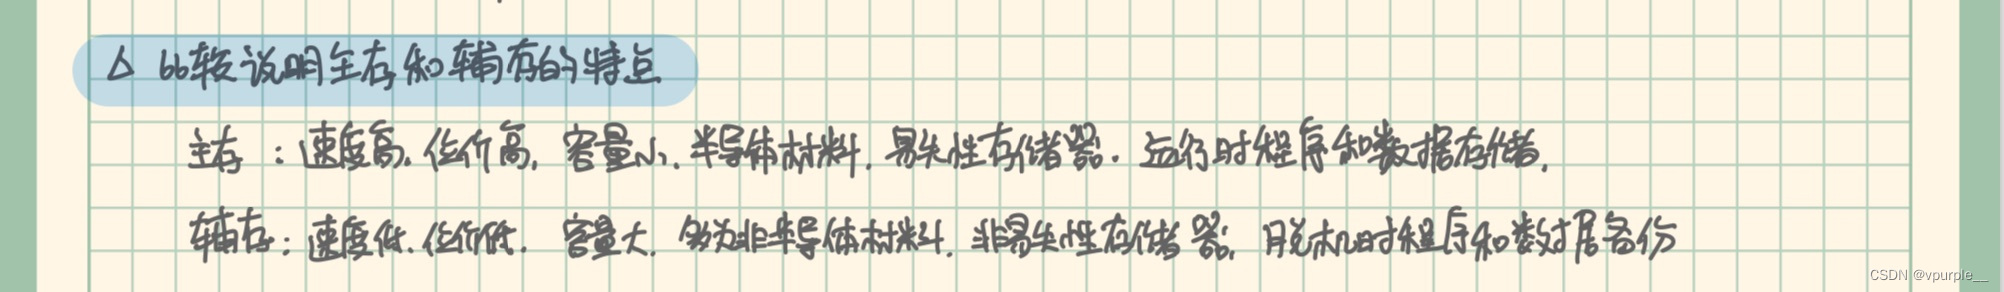 △ 比较说明主存和辅存的特点
主存：速度高，位价高，容量小，半导体材料，易失性存储器．运行时程序和数据存储，
辅存：速度低，位价低，容量大，多为非半导体材料，非易失性存储器，脱机时程序和数据备份
CSDN @vpurple__